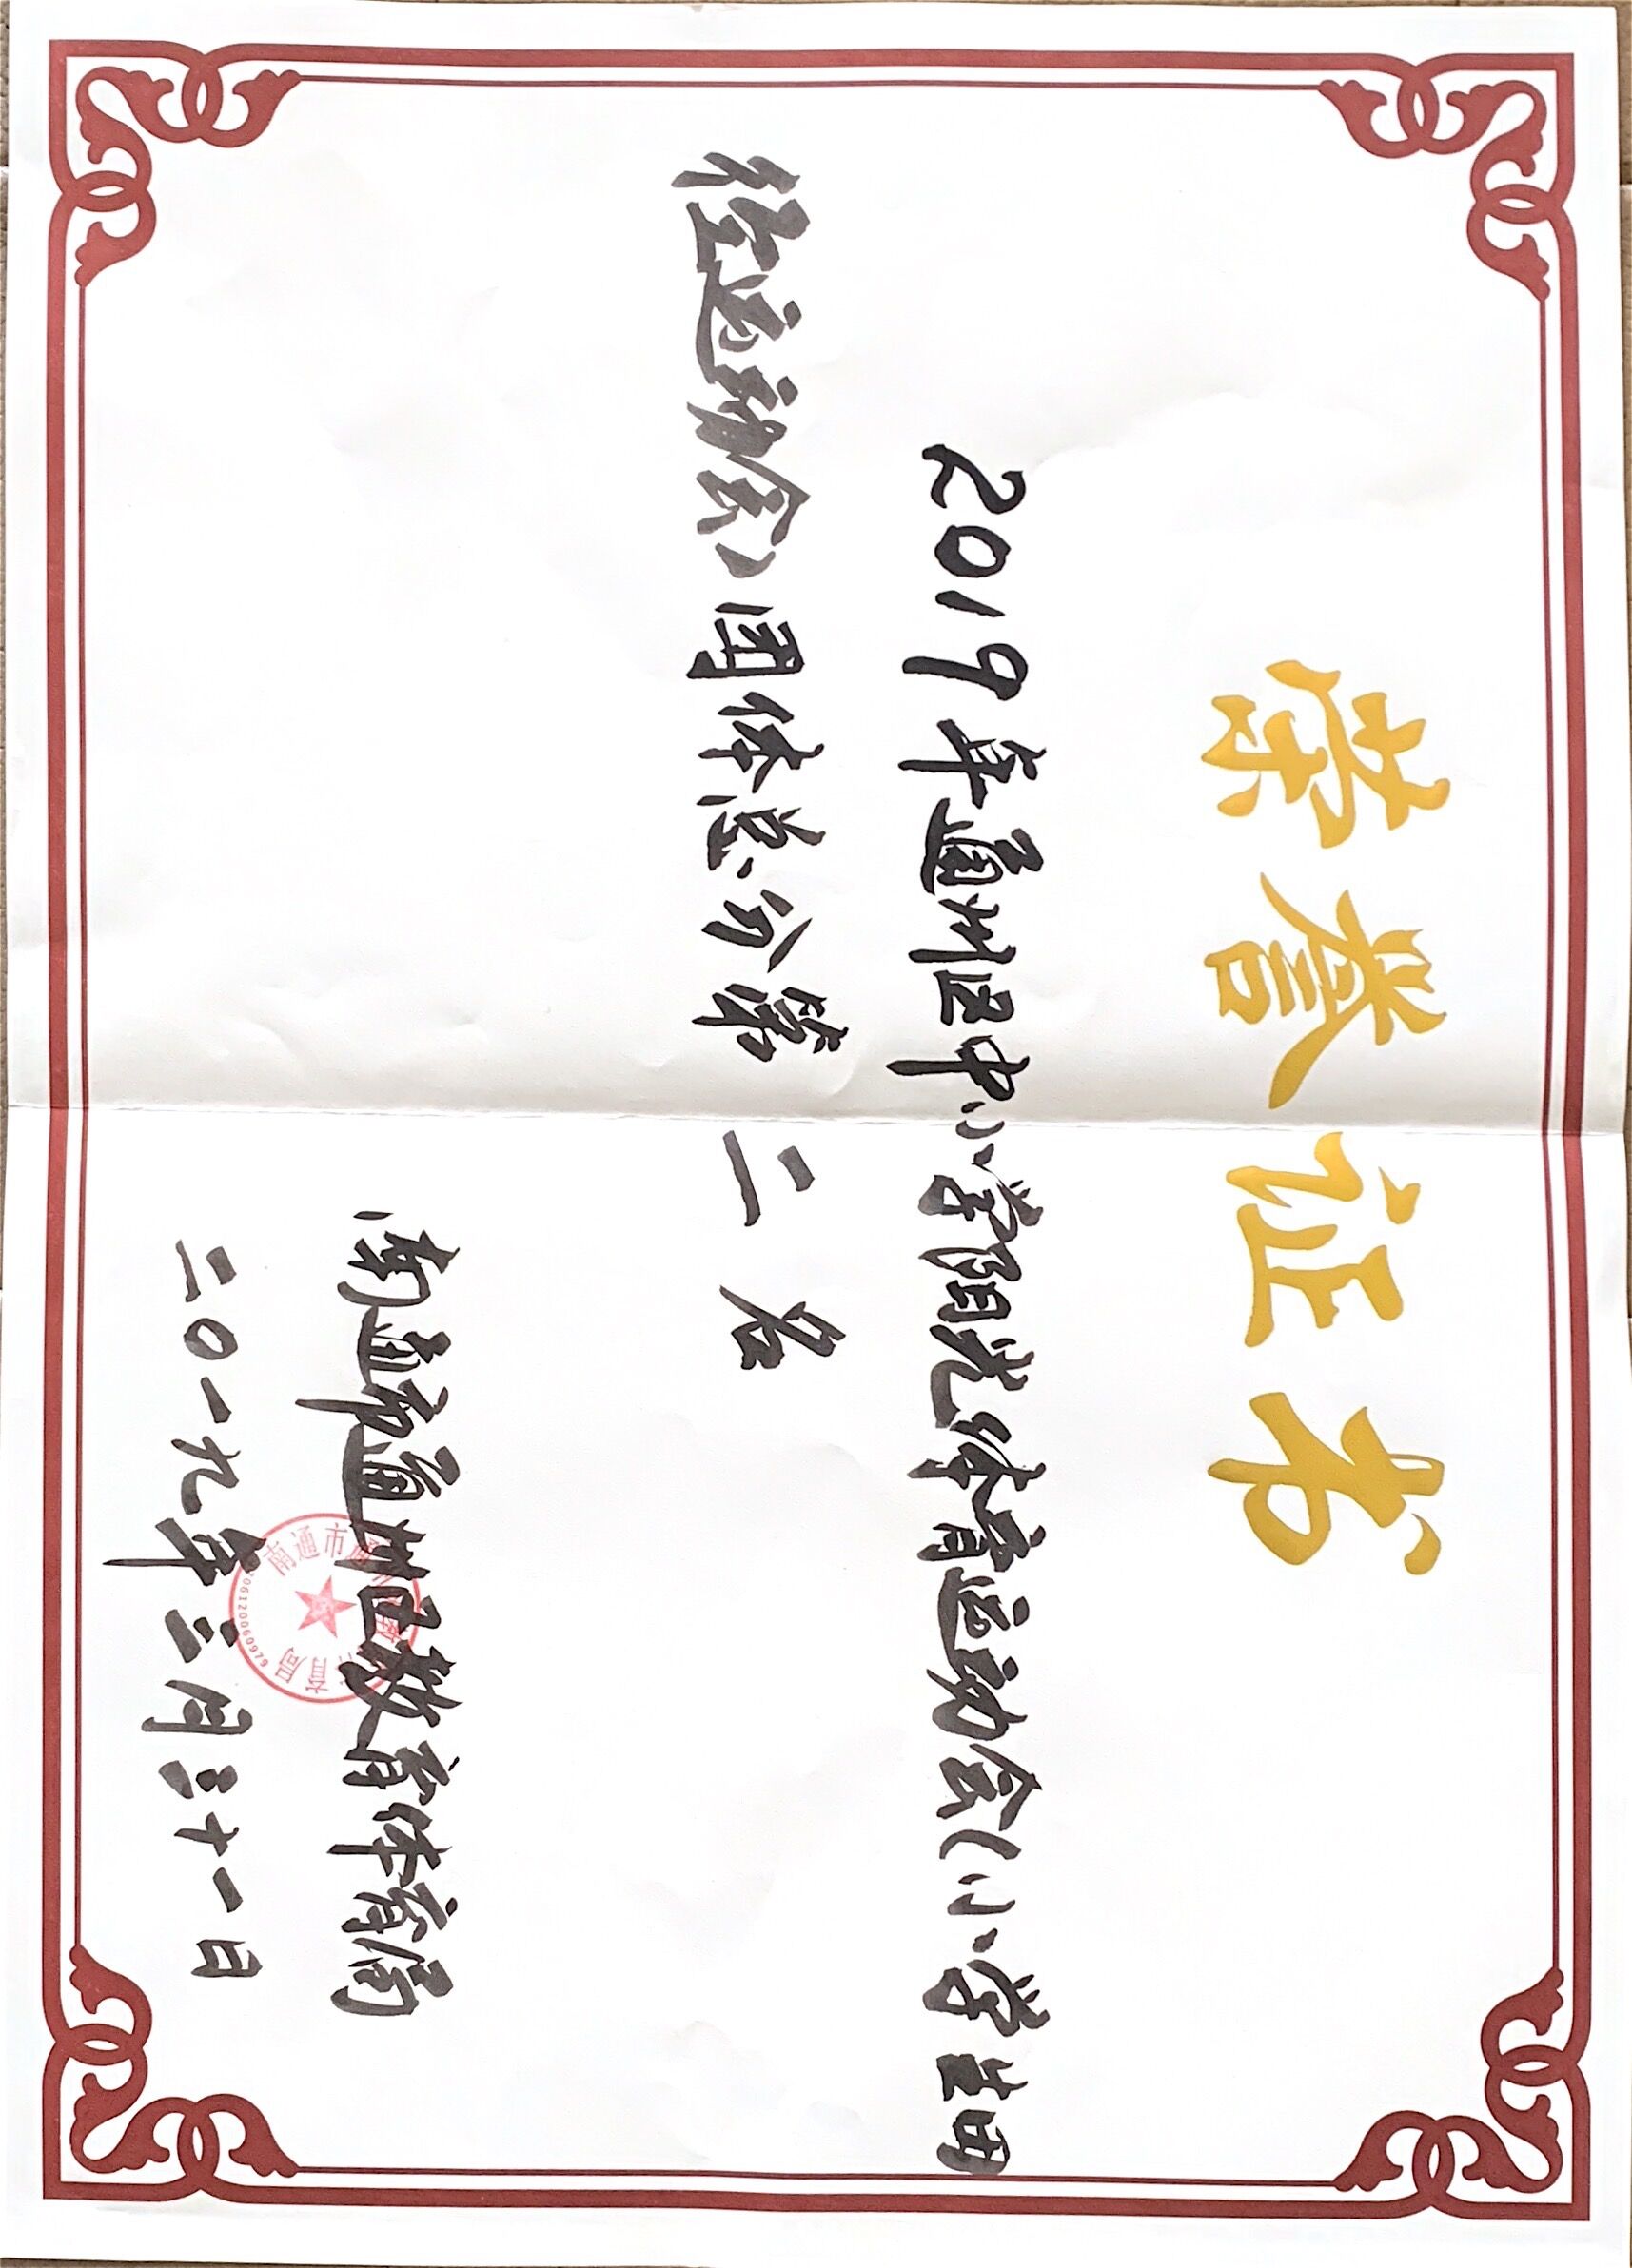 荣誉证书
2019年通州区中小学阳光体育运动会(小学生田
径运动会)团体总分第二名
南通市通州区教育体育局
二0一九年三月三十一日
南通市
育局